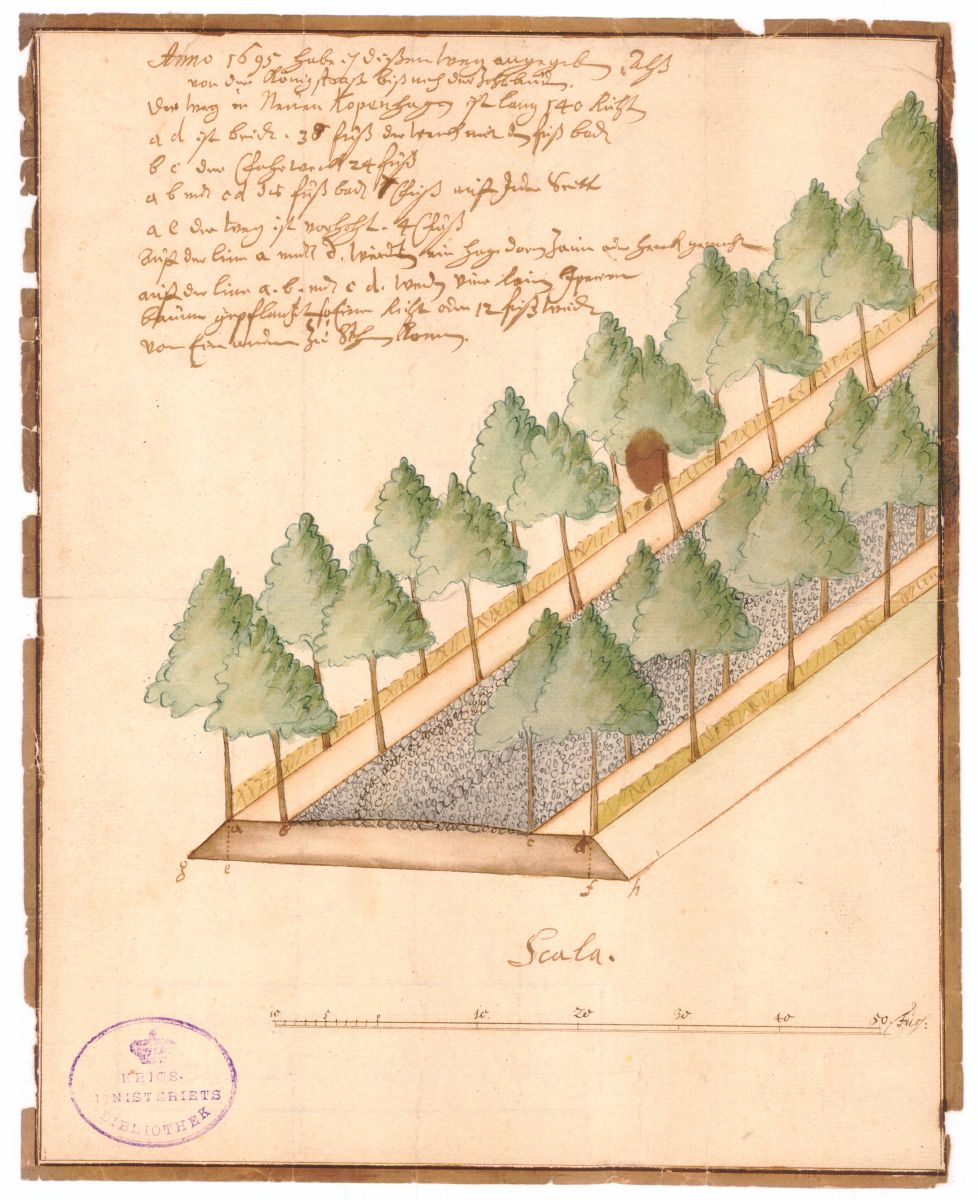 Anno 1695 habe ich dießen weg angegeben Alß
von der Königstraße biß nach der Zollbude.
Der weg in Neuen Kopenhagen ist lang 140 Ruht
a d ist breidt . 38 fuß der werck mit den fuß bad
b c der Fahrweck 24 fuß
a b und c d die fuß bad 7 fuß auff Jeder Seitt
a e der weg ist vorhoht . 4 fuß
auff der linie a und d. werdt ein hage dorn Zaun oder heck gemacht
auff der linie a. b. und c d. werdn
baume gepflantzt Ruht oder 12 fuß weidt
von Ein ander Zu Stehn Komen.
a
b
c
d
g
e
f
h
Scala.
10 5 0 10 20 30 40 50 Fuß:
KRIGS-
MINISTERIETS
BIBLIOTHEK